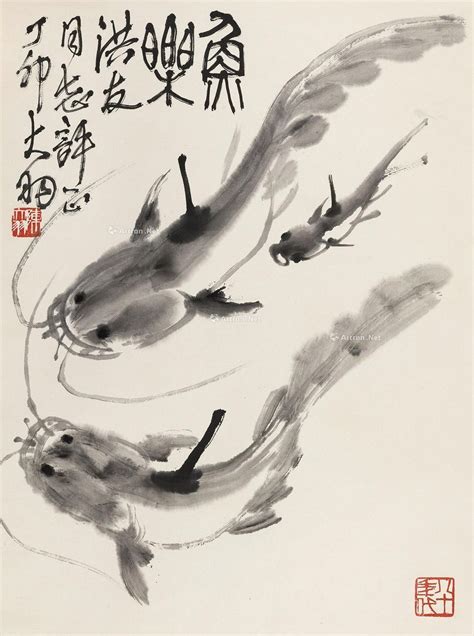 魚樂
洪友
同志評正
丁卯大羽
八十年代
Artron.Net
Artron.Net
Artron.Net